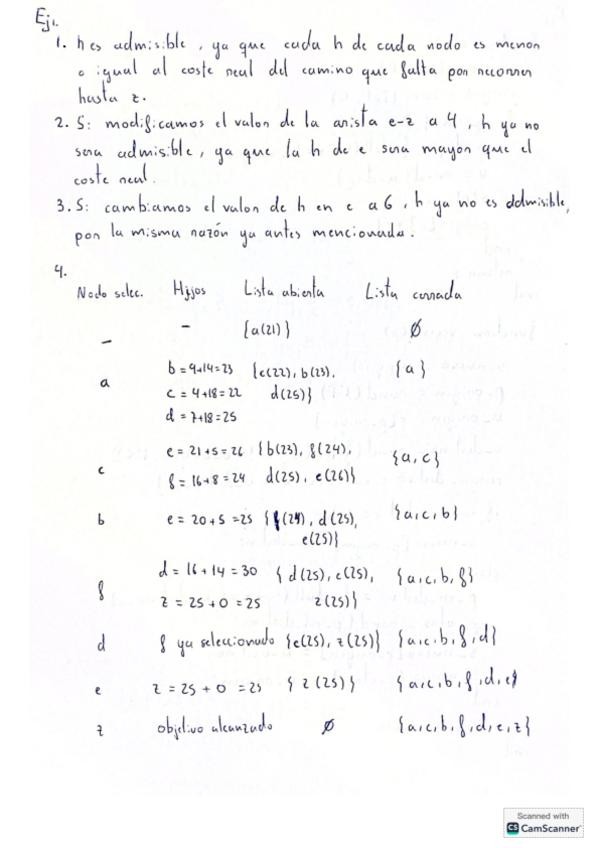 Ej1.
1. h es admisible, ya que cada h de cada nodo es menor
o igual al coste real del camino que falta por recorrer
hasta z.
2. Si modificamos el valor de la arista e-z a 4, h ya no
sera admisible, ya que la h de e sera mayor que el
coste real.
3. Si cambiamos el valor de h en e a 6, h ya no es admisible,
por la misma razón ya antes mencionada.
4.
Nodo selec. Hijos Lista abierta Lista cerrada
- - {a(21)} Ø
a b = 9+14=23 {c(22), b(23), {a}
c = 4+18=22 d(25)}
d = 7+18=25
c e = 21+5=26 {b(23), f(24), {a,c}
f = 16+8=24 d(25), e(26)}
b e = 20+5=25 {f(24), d(25), {a,c,b}
e(25)}
f d = 16+14=30 {d(25), e(25), {a,c,b,f}
z = 25+0=25 z(25)}
d f ya seleccionado {e(25), z(25)} {a,c,b,f,d}
e z = 25+0=25 {z(25)} {a,c,b,f,d,e}
z objetivo alcanzado Ø {a,c,b,f,d,e,z}
Scanned with
CS CamScanner